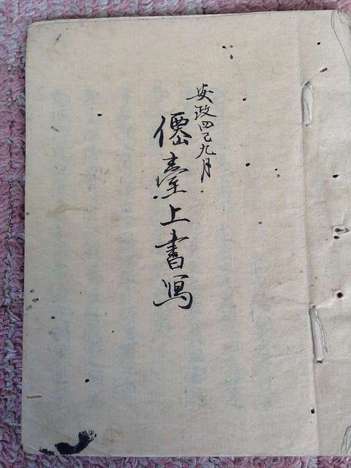 安政四巳九月
僊臺上書写